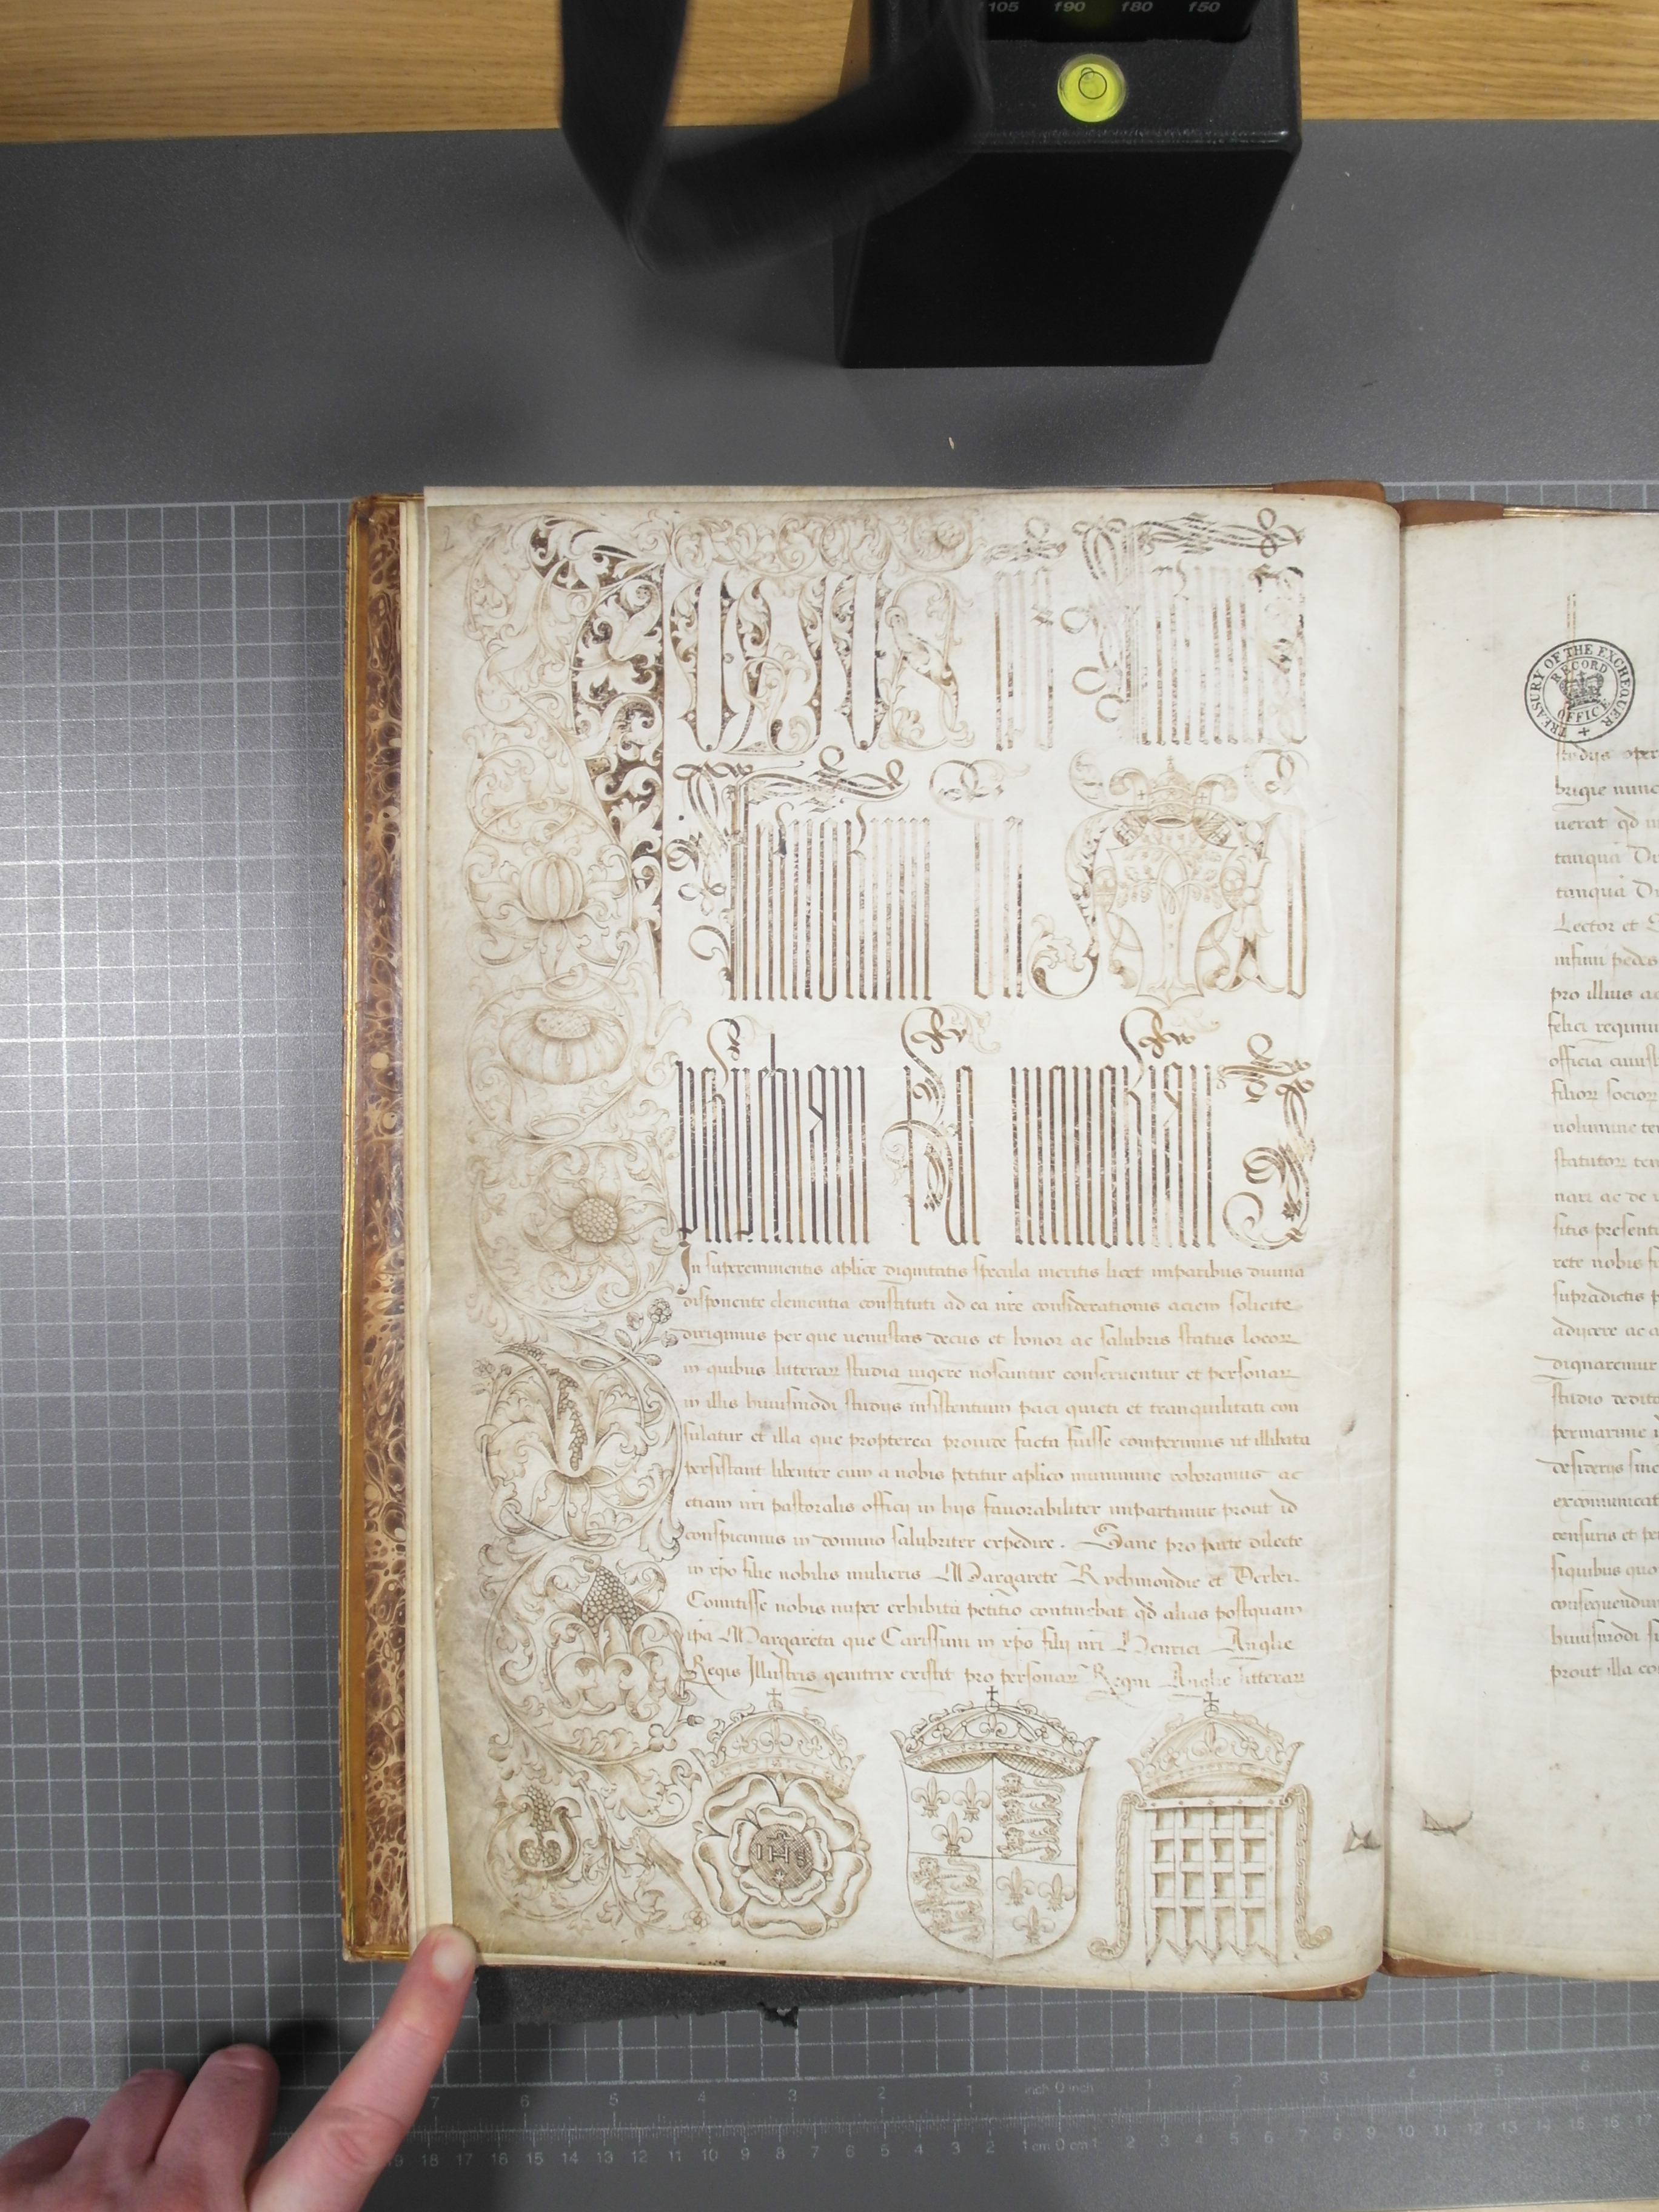 f105 f90 f80 f50
IULIUS eps Servus
servorum dei Ad
perpetuam Rei memoriam
In supereminentis aplice dignitatis specula meritis licet imparibus diuina
disponente clementia constituti ad ea nre considerationis aciem solicite
dirigimus per que uenustas decus et honor ac salubris status locor
in quibus litterar studia uigere noscuntur conseruentur et personar
in illis huiusmodi studijs insistentium paci quieti et tranquilitati con
sulatur et illa que propterea prouide facta fuisse comperimus ut illibata
persistant libenter cum a nobis petitur aplico munimine roboramus ac
etiam nri pastoralis officij in hijs fauorabiliter impartimur prout id
conspicimus in domino salubriter expedire. Sane pro parte dilecte
in xpo filie nobilis mulieris Margarete Rychmondie et Derbei.
Comitisse nobis nuper exhibita petitio continebat qd alias postquam
ipa Margareta que Carissimi in xpo filij nri Henrici Anglie
Regis Illustris genitrix existit pro personar Regni Anglie litterar
IHS
TREASURY OF THE EXCHEQUER
RECORD
OFFICE
studijs oper
brigie nunc
uerat qd in
tanqua Du
tanqua Du
Lector et S
infimi pedes
pro illius ac
felici regimi
officia cuiusl
filior socior
uolumine te
statutor ten
nari ac de
sitis presenti
rete nobis f
supradictis p
adijcere ac a
dignaremur
studio dedit
permaxime
desiderijs sinc
excomunicat
censuris et pe
siquibus quo
consequendum
huiusmodi s
prout illa co
7 6 5 4 3 2 1 inch 0 inch 1 2 3 4 5 6
19 18 17 16 15 14 13 12 11 10 9 8 7 6 5 4 3 2 1 cm 0 cm 1 2 3 4 5 6 7 8 9 10 11 12 13 14 15 16 17